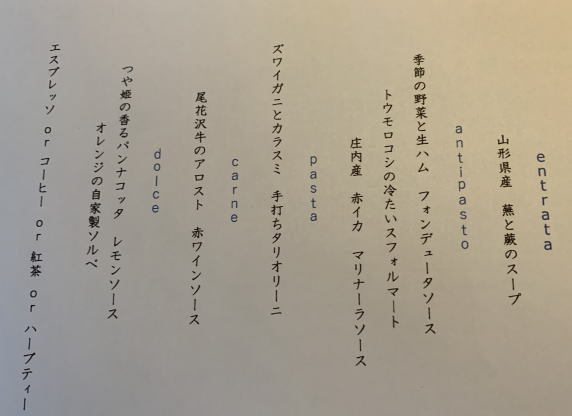 entrata
山形県産　蕪と蕨のスープ
antipasto
季節の野菜と生ハム　フォンデュータソース
トウモロコシの冷たいスフォルマート
庄内産　赤イカ　マリナーラソース
pasta
ズワイガニとカラスミ　手打ちタリオリーニ
carne
尾花沢牛のアロスト　赤ワインソース
dolce
つや姫の香るパンナコッタ　レモンソース
オレンジの自家製ソルベ
エスプレッソ or コーヒー or 紅茶 or ハーブティー